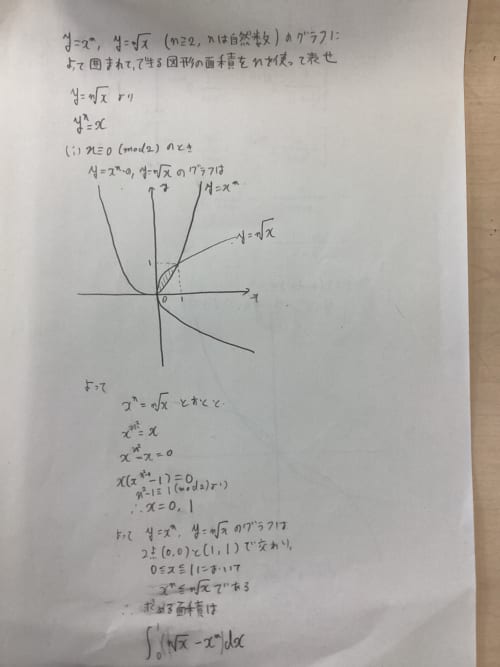 y=xⁿ, y=ⁿ√x (n≧2, nは自然数)のグラフに
よって囲まれてできる図形の面積をnを使って表せ
y=ⁿ√x より
yⁿ=x
(i) n≡0 (mod2) のとき
y=xⁿ, y=ⁿ√x のグラフは
y
y=xⁿ
y=ⁿ√x
1
0 1 x
よって
xⁿ=ⁿ√x とおくと
x^{n²}=x
x^{n²}-x=0
x(x^{n²-1}-1)=0
n²-1≡1 (mod2) より
∴x=0, 1
よって y=xⁿ, y=ⁿ√x のグラフは
2点(0,0)と(1,1)で交わり,
0≦x≦1において
xⁿ≦ⁿ√x である
∴ 求める面積は
∫₀¹(ⁿ√x-xⁿ)dx